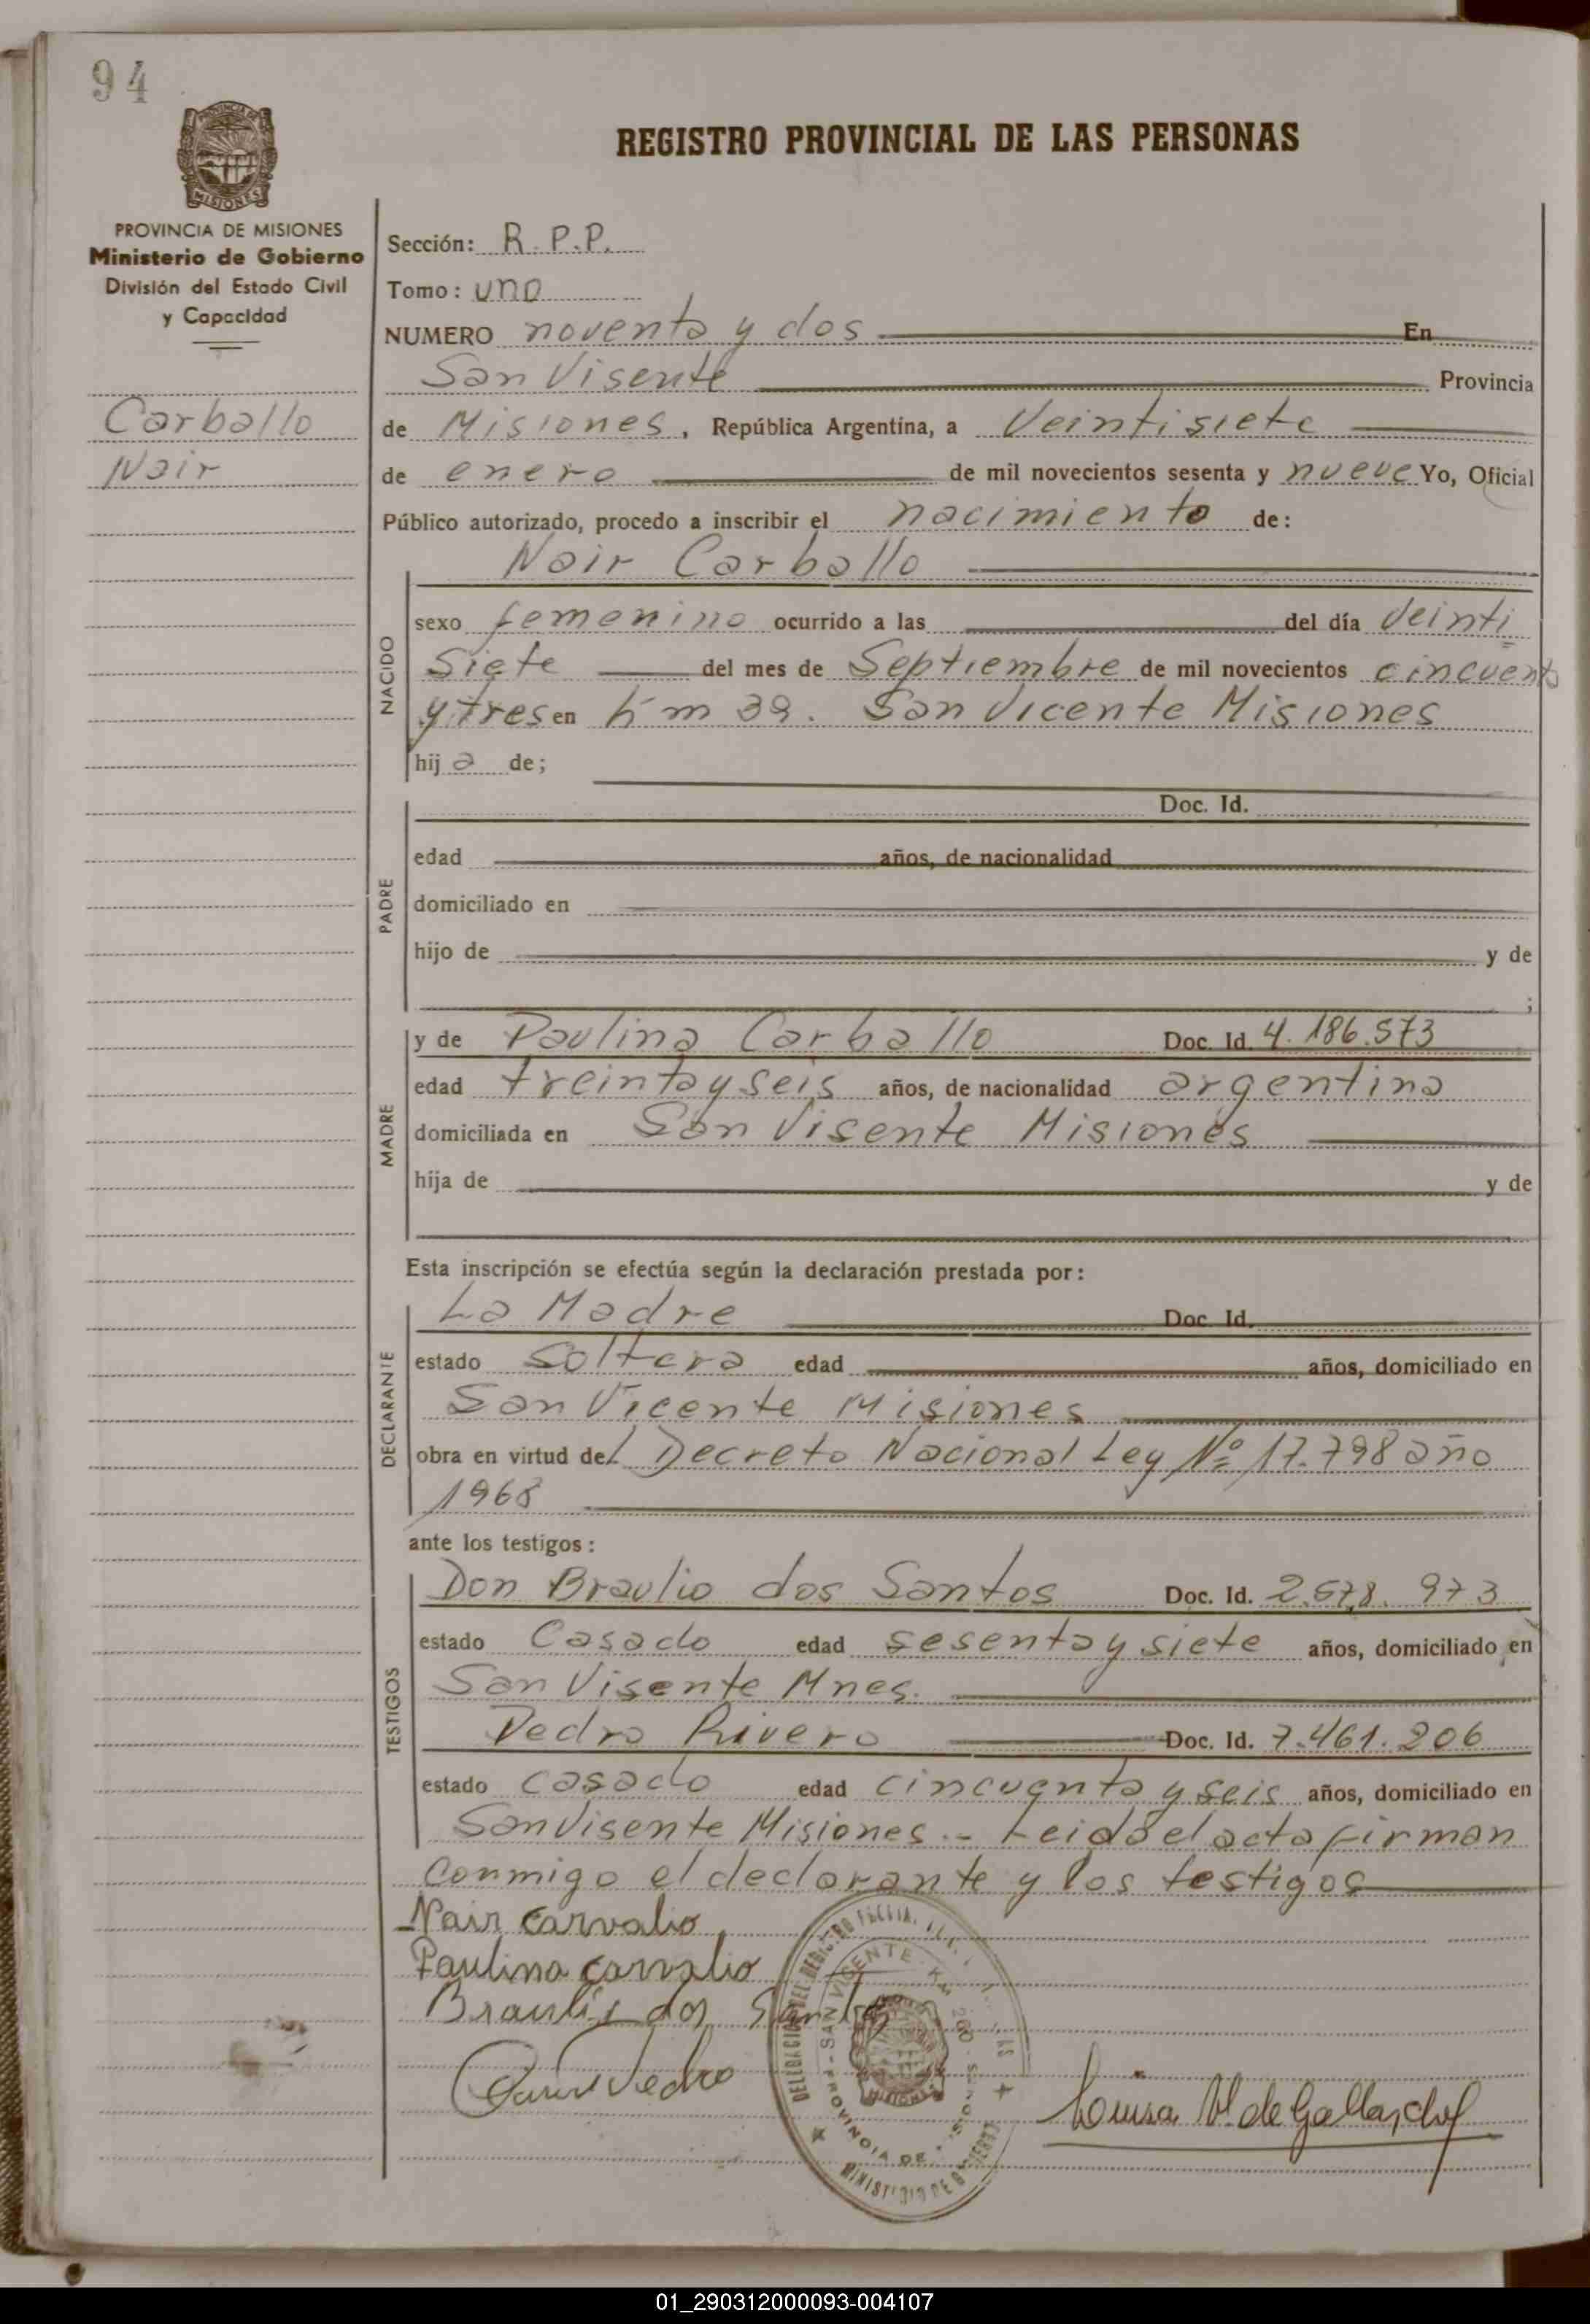 94
REGISTRO PROVINCIAL DE LAS PERSONAS
PROVINCIA DE MISIONES
Ministerio de Gobierno
División del Estado Civil
y Capacidad
Carballo
Nair
Sección: R.P.P.
Tomo: uno
NUMERO noventa y dos En
San Visente Provincia
de Misiones, República Argentina, a Veintisiete
de enero de mil novecientos sesenta y nueve Yo, Oficial
Público autorizado, procedo a inscribir el nacimiento de:
NACIDO
Nair Carballo
sexo femenino ocurrido a las del día Veinti
Siete del mes de Septiembre de mil novecientos cincuenta
y tres en Km 39. San Vicente Misiones
hija de;
PADRE
Doc. Id.
edad años, de nacionalidad
domiciliado en
hijo de y de
;
MADRE
y de Paulina Carballo Doc. Id. 4.186.573
edad treinta y seis años, de nacionalidad argentina
domiciliada en San Visente Misiones
hija de y de
Esta inscripción se efectúa según la declaración prestada por:
DECLARANTE
La Madre Doc. Id.
estado Soltera edad años, domiciliado en
San Vicente Misiones
obra en virtud del Decreto Nacional Ley Nº 17.798 año
1968
ante los testigos:
TESTIGOS
Don Braulio dos Santos Doc. Id. 2.678.973
estado Casado edad sesenta y siete años, domiciliado en
San Visente Mnes.
Pedro Rivero Doc. Id. 7.461.206
estado casado edad cincuenta y seis años, domiciliado en
San Visente Misiones.- Leida el acta firman
conmigo el declarante y los testigos
Nair Carvalio
Paulina carvalio
Braulio dos Santos
Pedro
Luisa V. de Gallardo
SAN VICENTE
PROVINCIA DE
MINISTERIO DE GOBIERNO
MISIONES
01_290312000093-004107